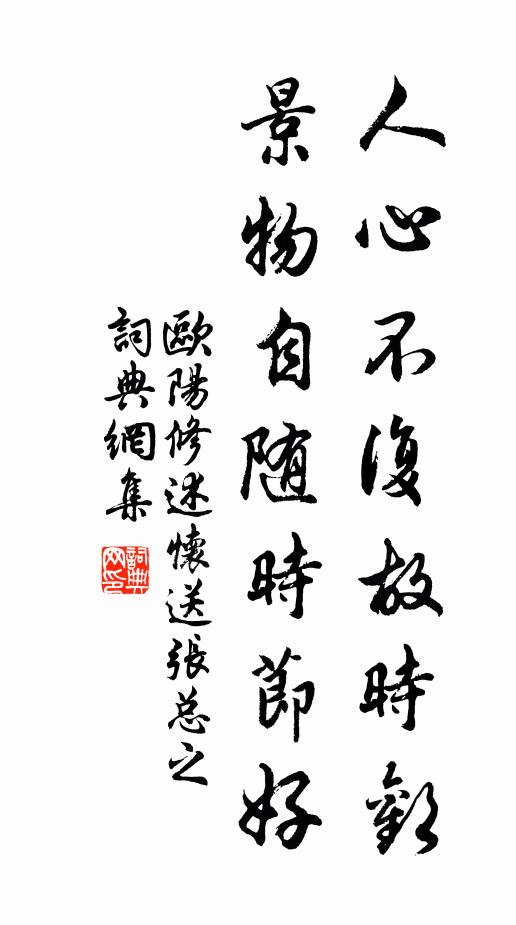 人心不復故時歡
景物自随時節好
歐陽修述懷送張总之
詞典網集
詞典网印